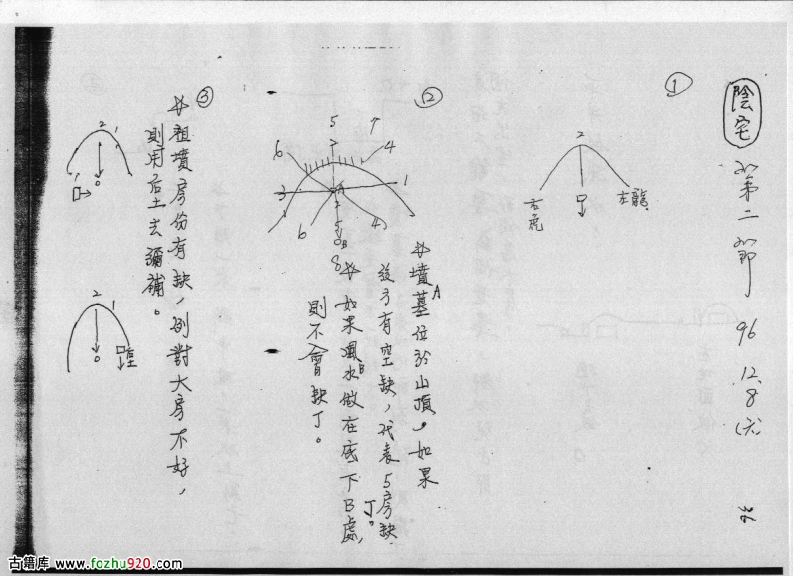 陰宅 第二節 96.12.8(六)
①
2
左龍
右虎
②
5 7
2
6 4
3 A 1
2
6 5 4
B
8
※墳墓A位於山頂，如果
後方有空缺，代表5房缺丁。
※如果風水做在底下B處，
則不會缺丁。
③
※祖墳房份有缺，例對大房不好，
則用后土去彌補。
2 1
1
2 1
古籍库 www.fczhu920.com